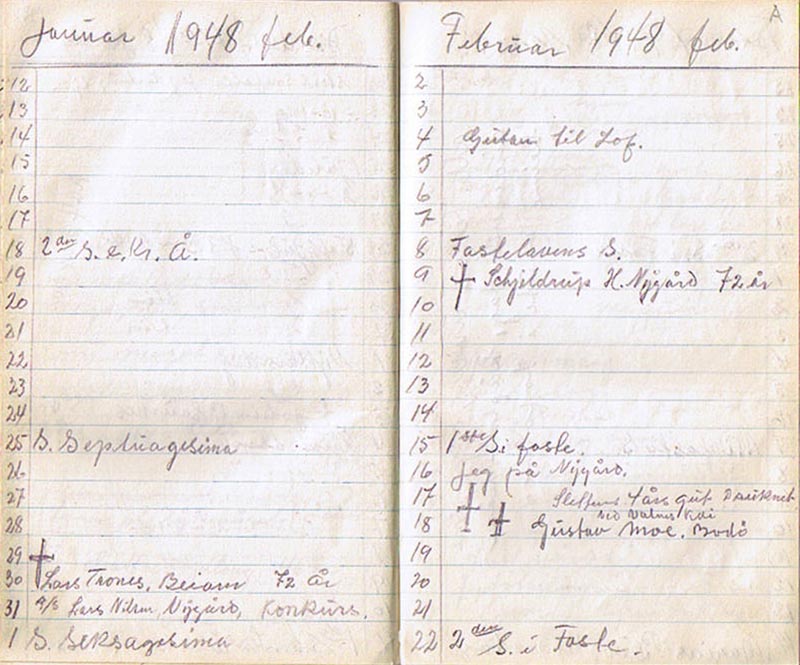 Januar 1948 feb.
12
13
14
15
16
17
18 2den S. e. Kr. Å.
19
20
21
22
23
24
25 S. Septuagesima
26
27
28
29 †
30 Lars Trones, Beiarn 72 år
31 A/S Lars Nilsen, Nygård, Konkurs.
1 S. Seksagesima
A
Februar 1948 feb.
2
3
4 Gutan til Lof.
5
6
7
8 Fastelavens S.
9 † Schjeldrup H. Nygård 72 år
10
11
12
13
14
15 1ste S i faste.
16 Jeg på Nygård.
17 † Steffens 4 års gut Druknet
ved Valnes Kai
18 † Gustav Moe. Bodø
19
20
21
22 2den S. i Faste.